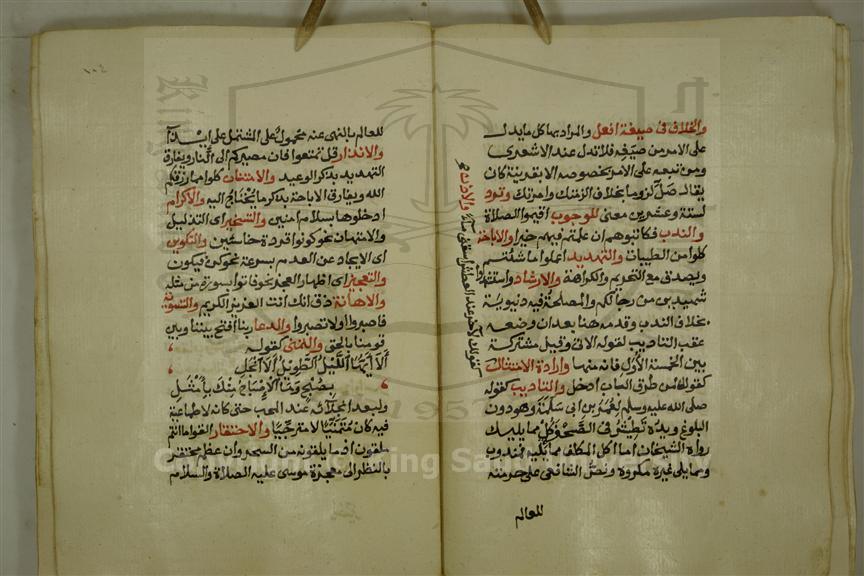 والخلاف في صيغة افعل والمراد بها كل ما يدل
على الامر من صيغه فلا تدل عند الاشعري
ومن تبعه على الامر بخصوصه الا بقرينة كان
يقال صل لزوما بخلاف الزمتك وامرتك وترد
لستة وعشرين معنى للوجوب اقيموا الصلاة
والندب فكاتبوهم ان علمتم فيهم خيرا والاباحة
كلوا من الطيبات والتهديد اعملوا ما شئتم
ويصدق مع التحريم والكراهة والارشاد واستشـ
شهيدين من رجالكم والمصلحة فيه دنيوية
بخلاف الندب وقدمه هنا بعد ان وضعه
عقب التاديب لقوله الاتي وقيل مشتركة
بين الخمسة الاول فانه منها وارادة الامتثال
كقولك لمن طرق الباب ادخل والتاديب كقوله
صلى الله عليه وسلم لعمر بن ابي سلمة وهو دون
البلوغ ويده تطيش في الصحفة كل مما يليك
رواه الشيخان اما اكل المكلف مما يليه فمندوب
ومما يلي غيره مكروه ونص الشافعي على حرمته
للعالم
والاذن
كقولك لاخر عند العطش اسقني ماء
١٠٤
للعالم بالنهي عنه محمول على المشتمل على ايذآ
والانذار قل تمتعوا فان مصيركم الى النار ويفارق
التهديد بذكر الوعيد والامتنان كلوا مما رزقكم
الله ويفارق الاباحة بذكر ما يحتاج اليه والاكرام
ادخلوها بسلام امنين والتسخير اي التذليل
والامتهان نحو كونوا قردة خاسئين والتكوين
اي الايجاد عن العدم بسرعة نحو كن فيكون
والتعجيز اي اظهار العجز نحو فاتوا بسورة من مثله
والاهانة ذق انك انت العزيز الكريم والتسوية
فاصبروا اولا تصبروا والدعا ربنا افتح بيننا وبين
قومنا بالحق والتمني كقوله
الا ايها الليل الطويل الا انجلي
بصبح وما الاصباح منك بامثل
ولبعد انجلائه عند المحب حتى كانه لا طماعية
فيه كان متمنيا لا مترجيا والاحتقار القوا ما انتم
ملقون اذ ما يلقونه من السحر وان عظم محتقر
بالنظر الى معجزة موسى عليه الصلاة والسلام